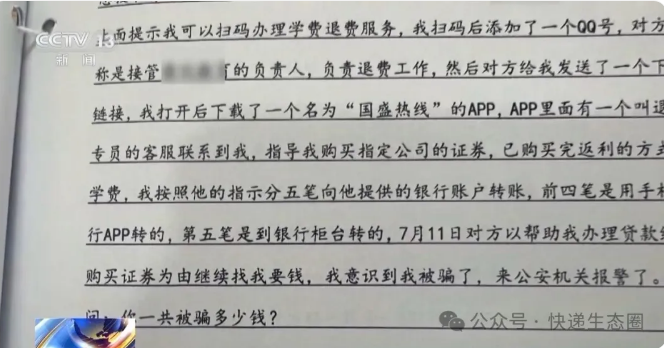 CCTV 13
新闻
上面提示我可以扫码办理学费退费服务，我扫码后添加了一个QQ号，对方
称是接管 的负责人，负责退费工作，然后对方给我发送了一个下
链接，我打开后下载了一个名为“国盛热线”的APP，APP里面有一个叫退
专员的客服联系到我，指导我购买指定公司的证券，已购买完返利的方式
学费，我按照他的指示分五笔向他提供的银行账户转账，前四笔是用手机
行APP转的，第五笔是到银行柜台转的，7月11日对方以帮助我办理贷款
购买证券为由继续找我要钱，我意识到我被骗了，来公安机关报警了。
问：你一共被骗多少钱？
公众号·快递生态圈